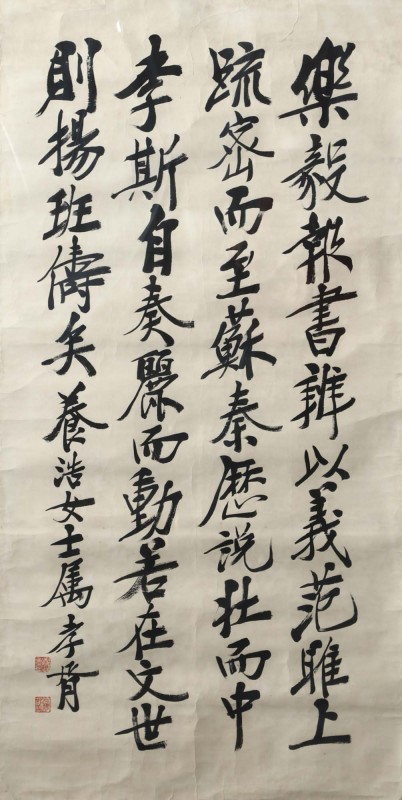 樂毅報書辨以義范雎上
疏密而至蘇秦歷說壯而中
李斯自奏麗而動若在文世
則揚班儔矣養浩女士属孝胥